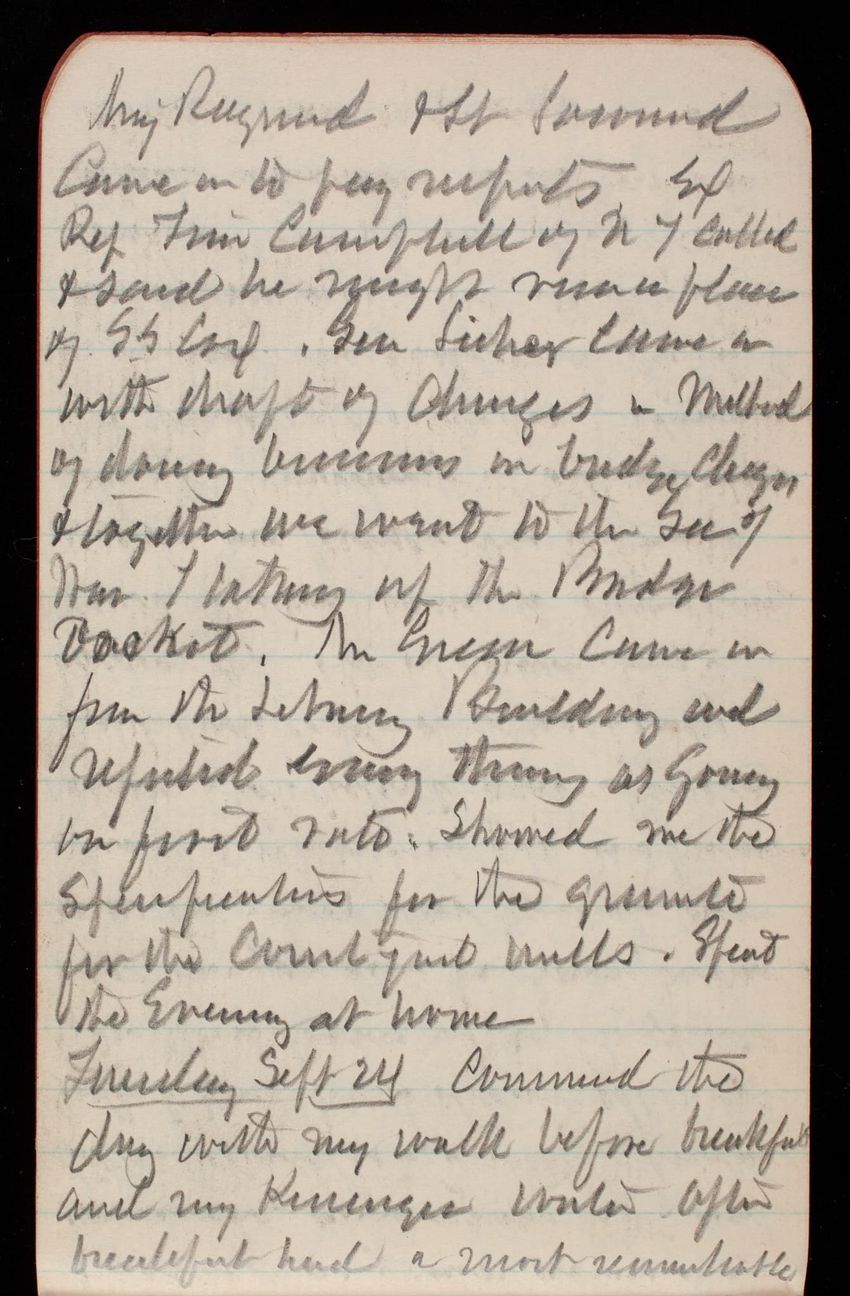 Maj Raymond & Lt
Came in to pay respects. Ex
Rep Tim Campbell of N Y called
& said he might run in place
of SS Cox. Gen Casey came in
with draft of changes in Method
of doing business in bridge changes
& together we went to the Sec of
War I taking up the Bridge
Docket. Mr Green came in
from the Library Building and
reported every thing as going
on first rate. Showed me the
specifications for the granite
for the Court yard walls. Spent
the Evening at home
Tuesday Sept 24 Commenced the
day with my walk before breakfast
and my Kissengen water After
breakfast had a most remarkable